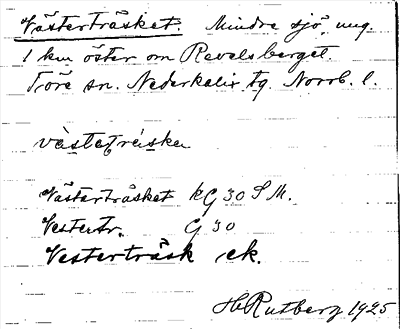 Västerträsket. Mindre sjö, ung.
1 km öster om Revelsberget.
Töre sn. Nederkalix tg. Norrb. l.
västeträsket
Västerträsket kG 30 S M.
Vestertr. G 30
Vesterträsk ek.
H Rutberg 1925